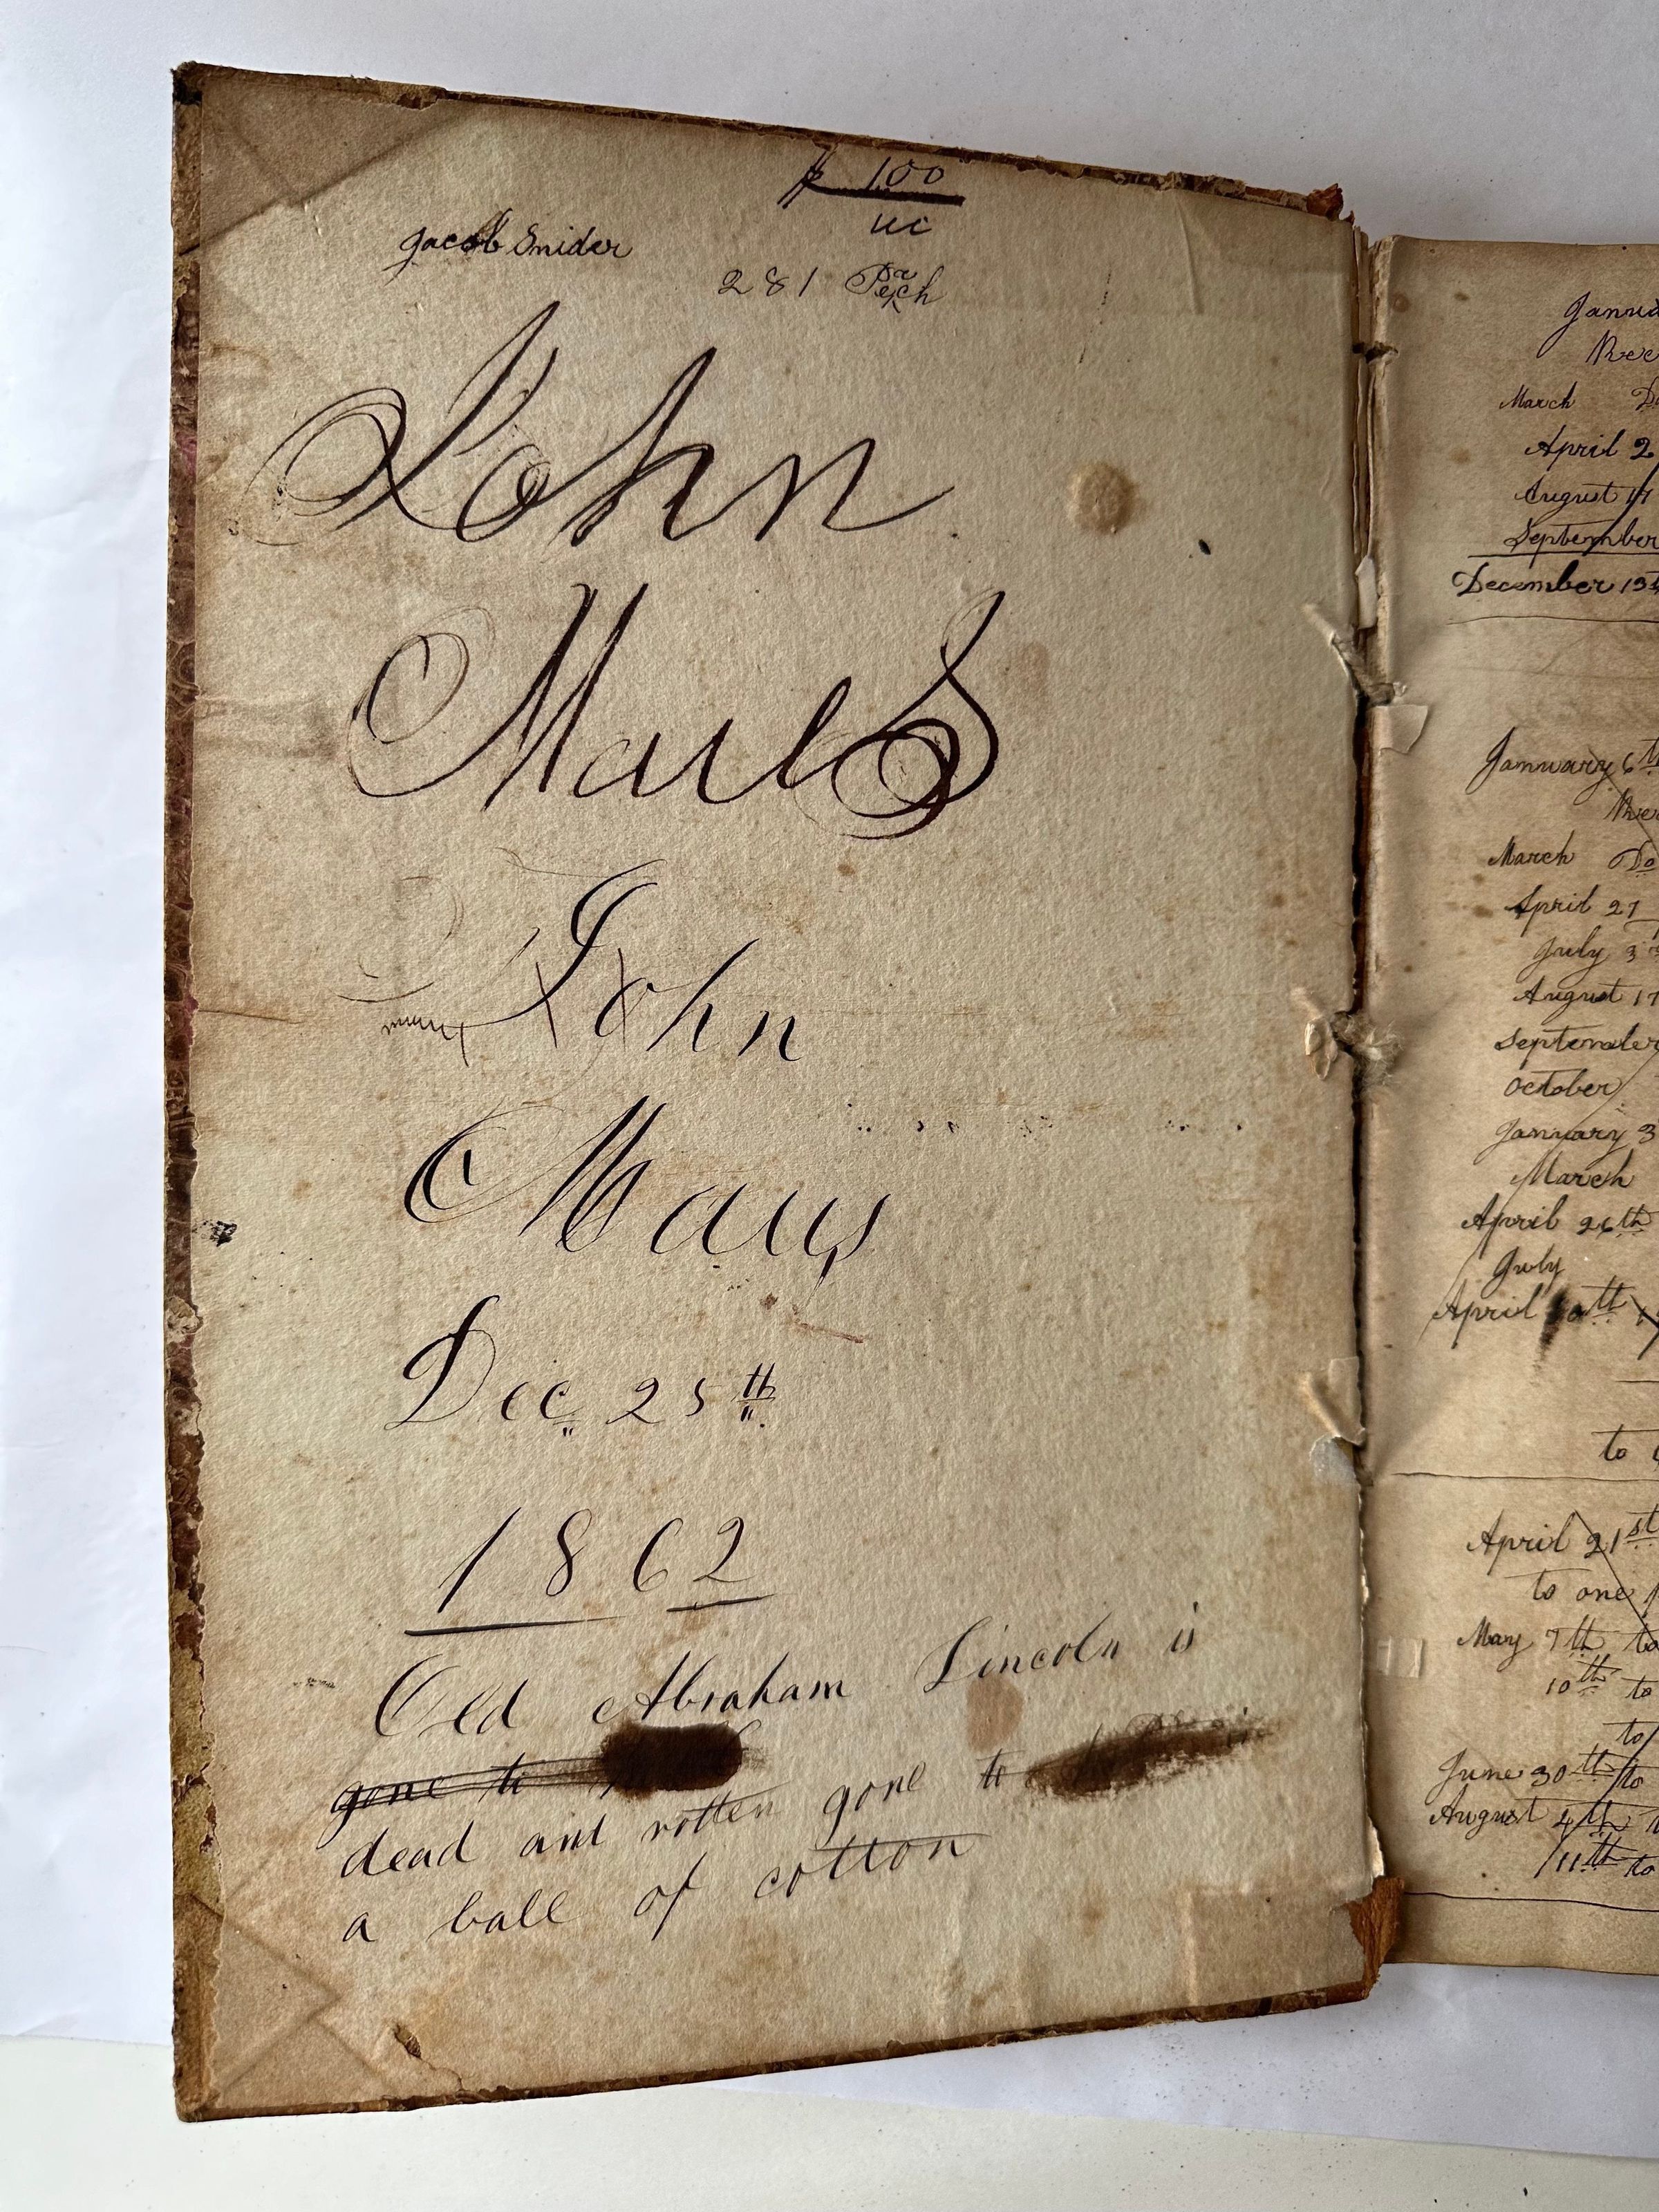 $ 100
uc
Jacob Snider
281 Perch
John
Maus
John
Maus
Dec 25th
1862
Old Abraham Lincoln is
gone to
dead and rotten gone to
a ball of cotton
March
April 2
August 17
September
December 13
January 6th
March Do
April 27
July 3
August 17
September
October
January 3
March
April 26th
July
April
to
April 21st
to one
May 7th to
10th to
to
June 30th to
August 4th
11th to